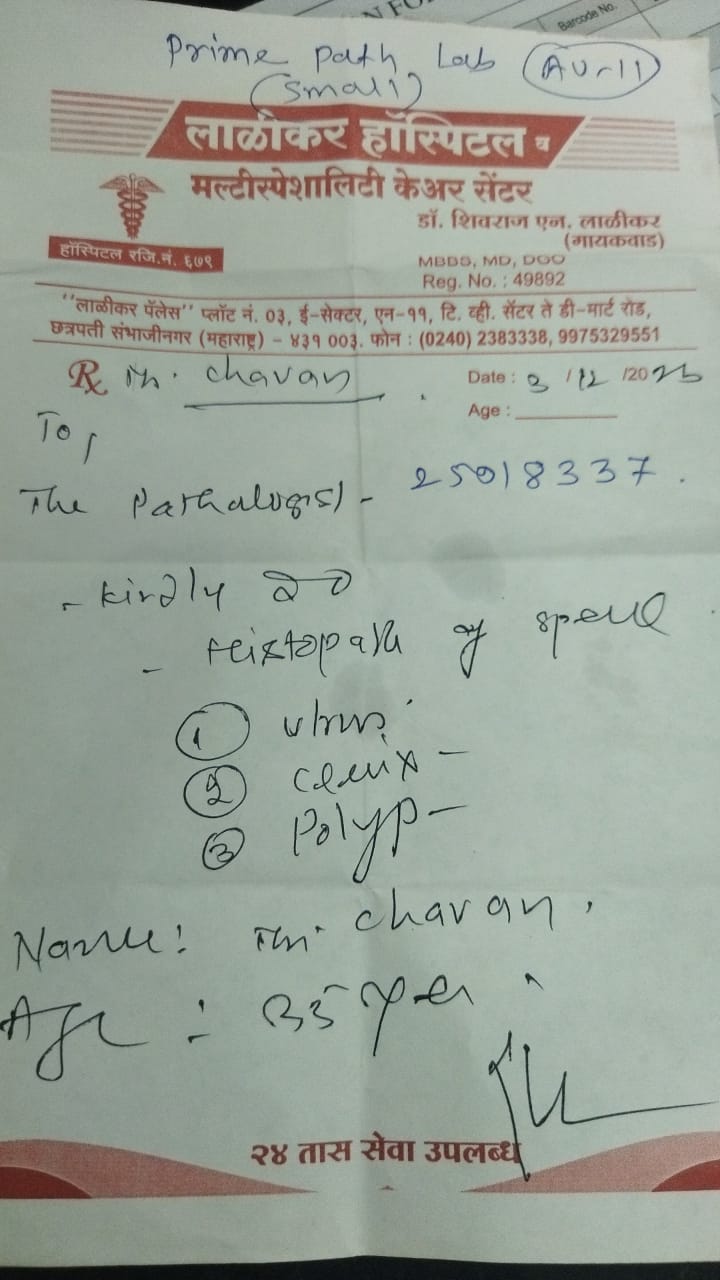 Barcode No.
Prime Path Lab (AU-11)
(Small)
लाळीकर हॉस्पिटल व
मल्टीस्पेशालिटी केअर सेंटर
डॉ. शिवराज एन. लाळीकर
(गायकवाड)
हॉस्पिटल रजि.नं. ६७९
MBBS, MD, DGO
Reg. No. : 49892
"लाळीकर पॅलेस" प्लॉट नं. ०३, ई-सेक्टर, एन-११, टि. व्ही. सेंटर ते डी-मार्ट रोड,
छत्रपती संभाजीनगर (महाराष्ट्र) - ४३१ ००३. फोन : (0240) 2383338, 9975329551
Rx chavan Date : 3 /12 /2025
Age :
To,
The Pathalogist - 25018337.
- kindly do
- Histopath of
① utrus
② cervix -
③ Polyp -
Name: chavan.
Age : 35 yer
२४ तास सेवा उपलब्ध